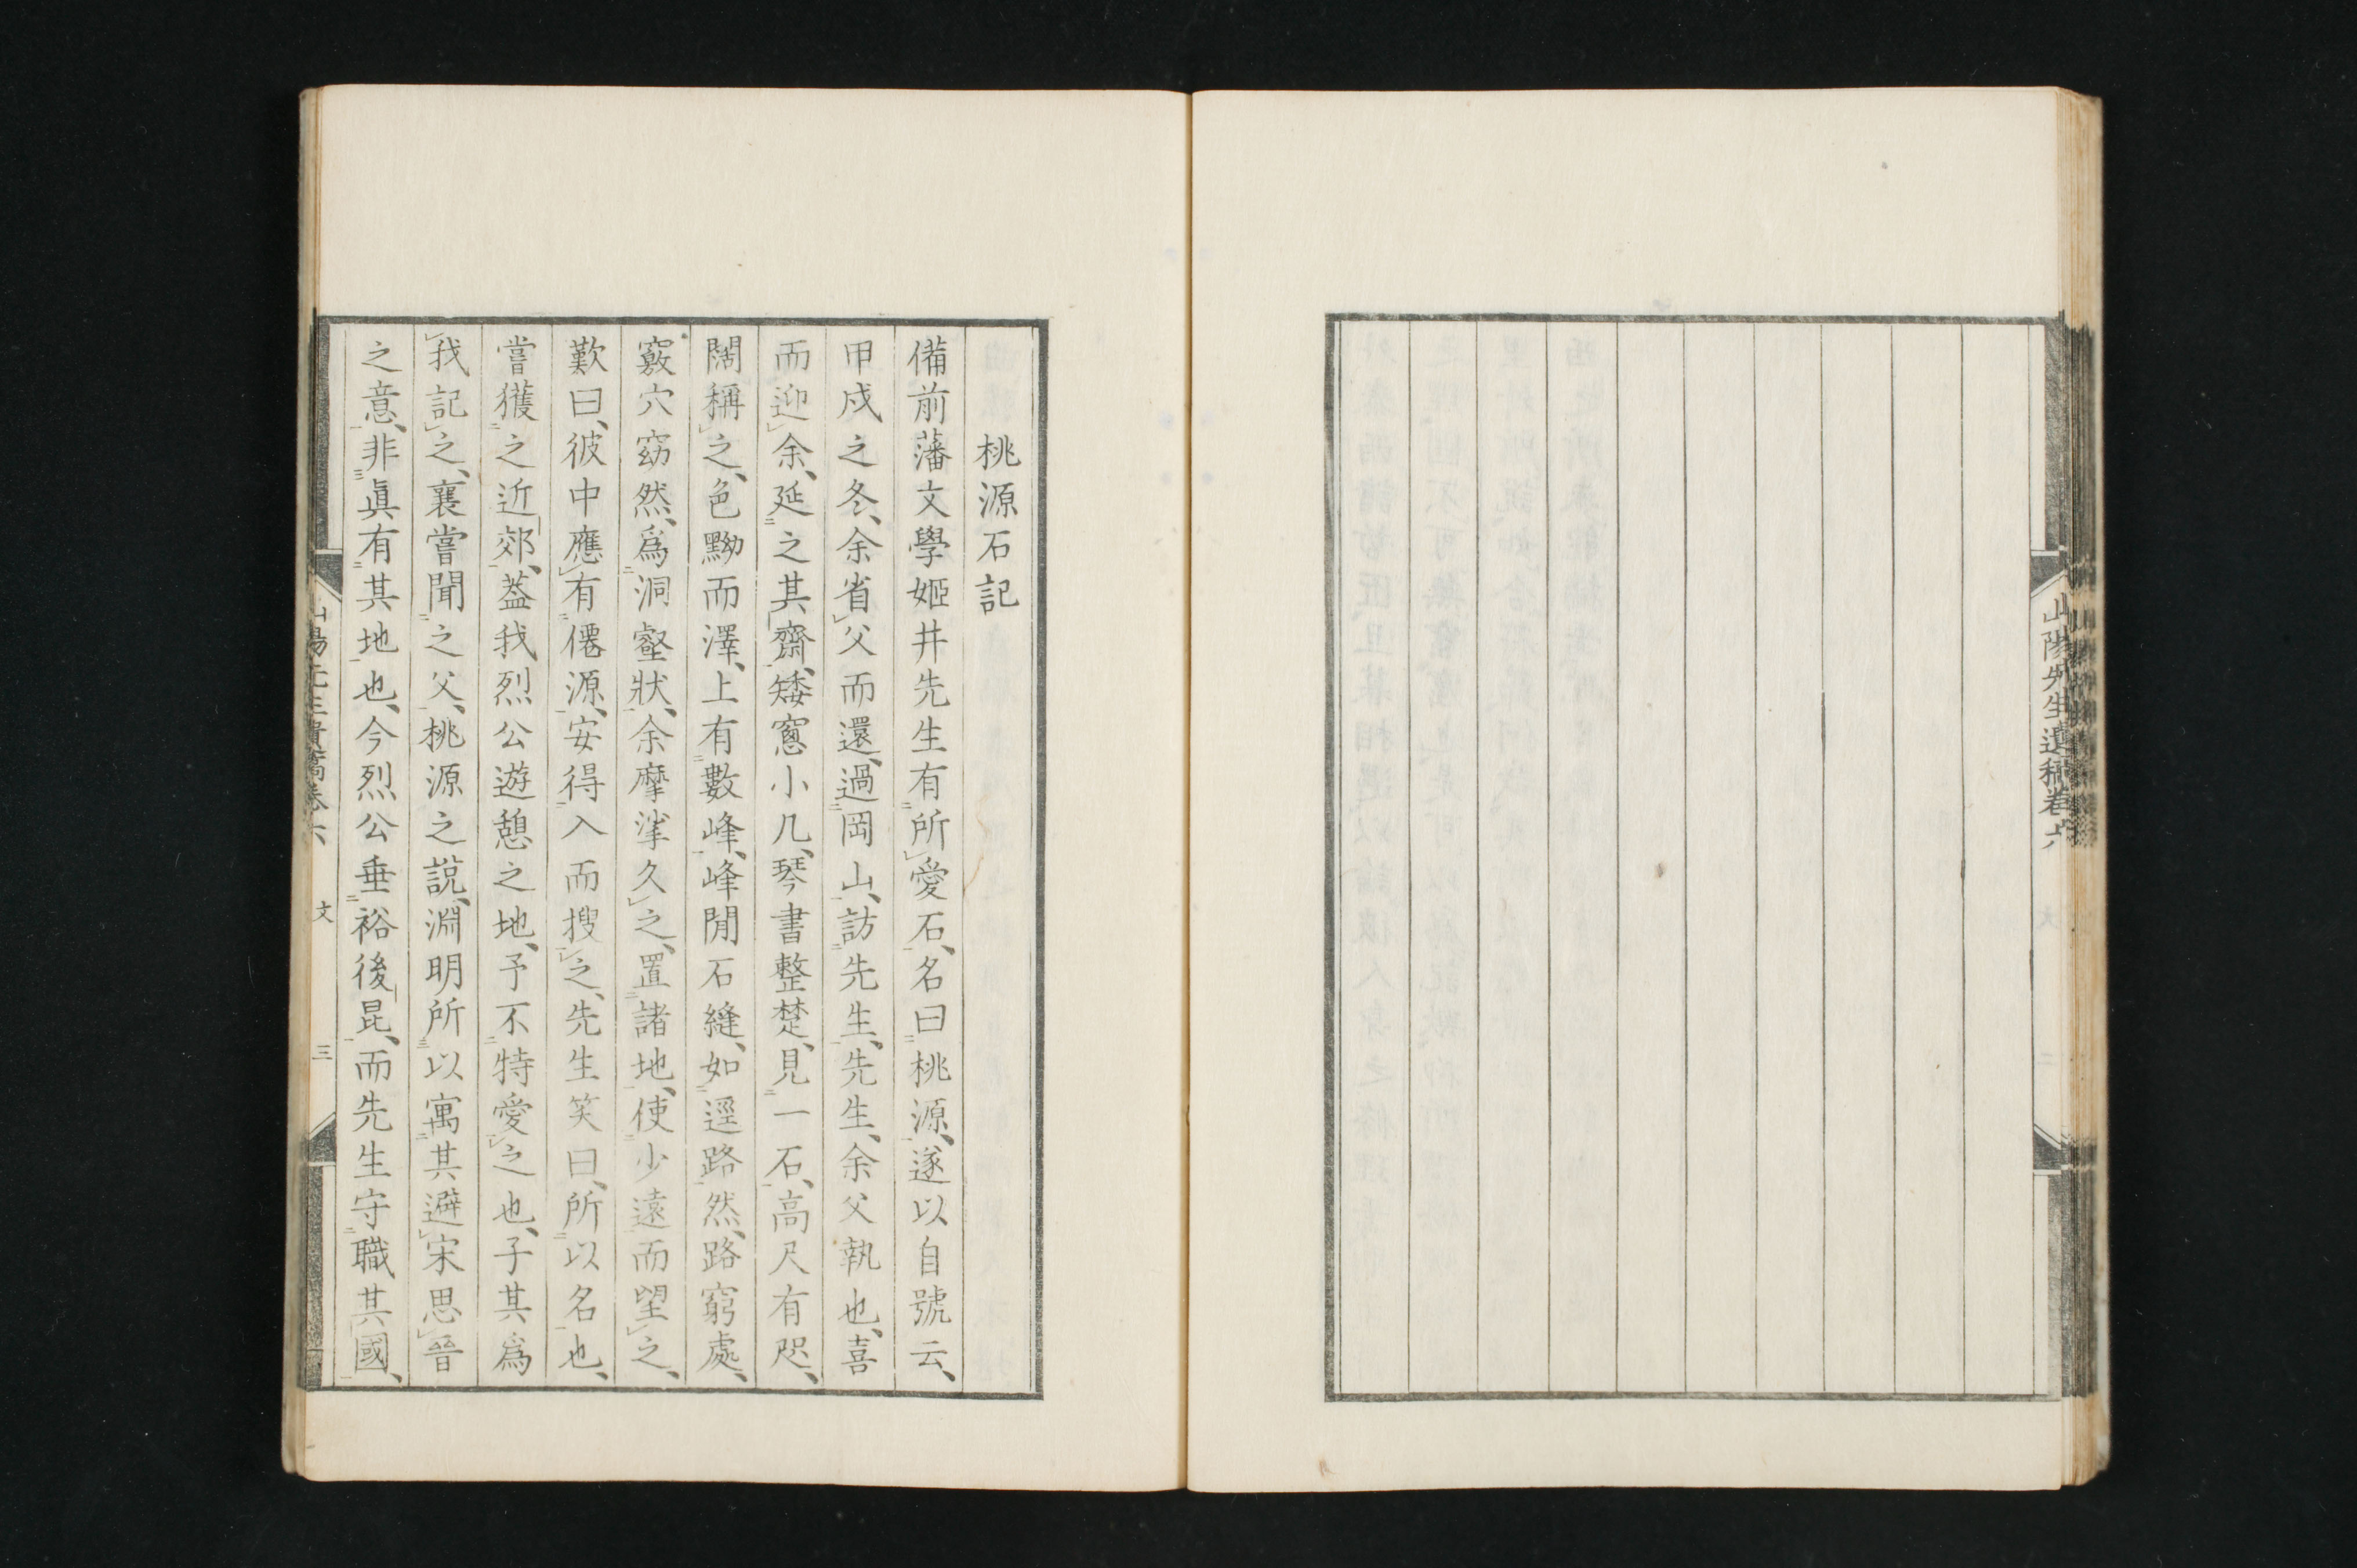 山陽先生遺稿卷六
桃源石記
備前藩文學姬井先生有所愛石、名曰桃源、遂以自號云、
甲戍之冬、余省父而還、過岡山、訪先生、先生、余父執也、喜
而迎余、延之其齋、矮窻小几、琴書整楚、見一石、高尺有咫、
闊稱之、色黝而澤、上有數峰、峰閒石縫、如逕路然、路窮處、
竅穴窈然、爲洞壑狀、余摩挲久之、置諸地、使少遠而望之、
歎曰、彼中應有僊源、安得入而搜之、先生笑曰、所以名也、
嘗獲之近郊、葢我烈公遊憩之地、予不特愛之也、子其爲
我記之、襄嘗聞之父、桃源之說、淵明所以寓其避宋思晉
之意、非眞有其地也、今烈公垂裕後昆、而先生守職其國、
山陽先生遺稿卷六 文 三